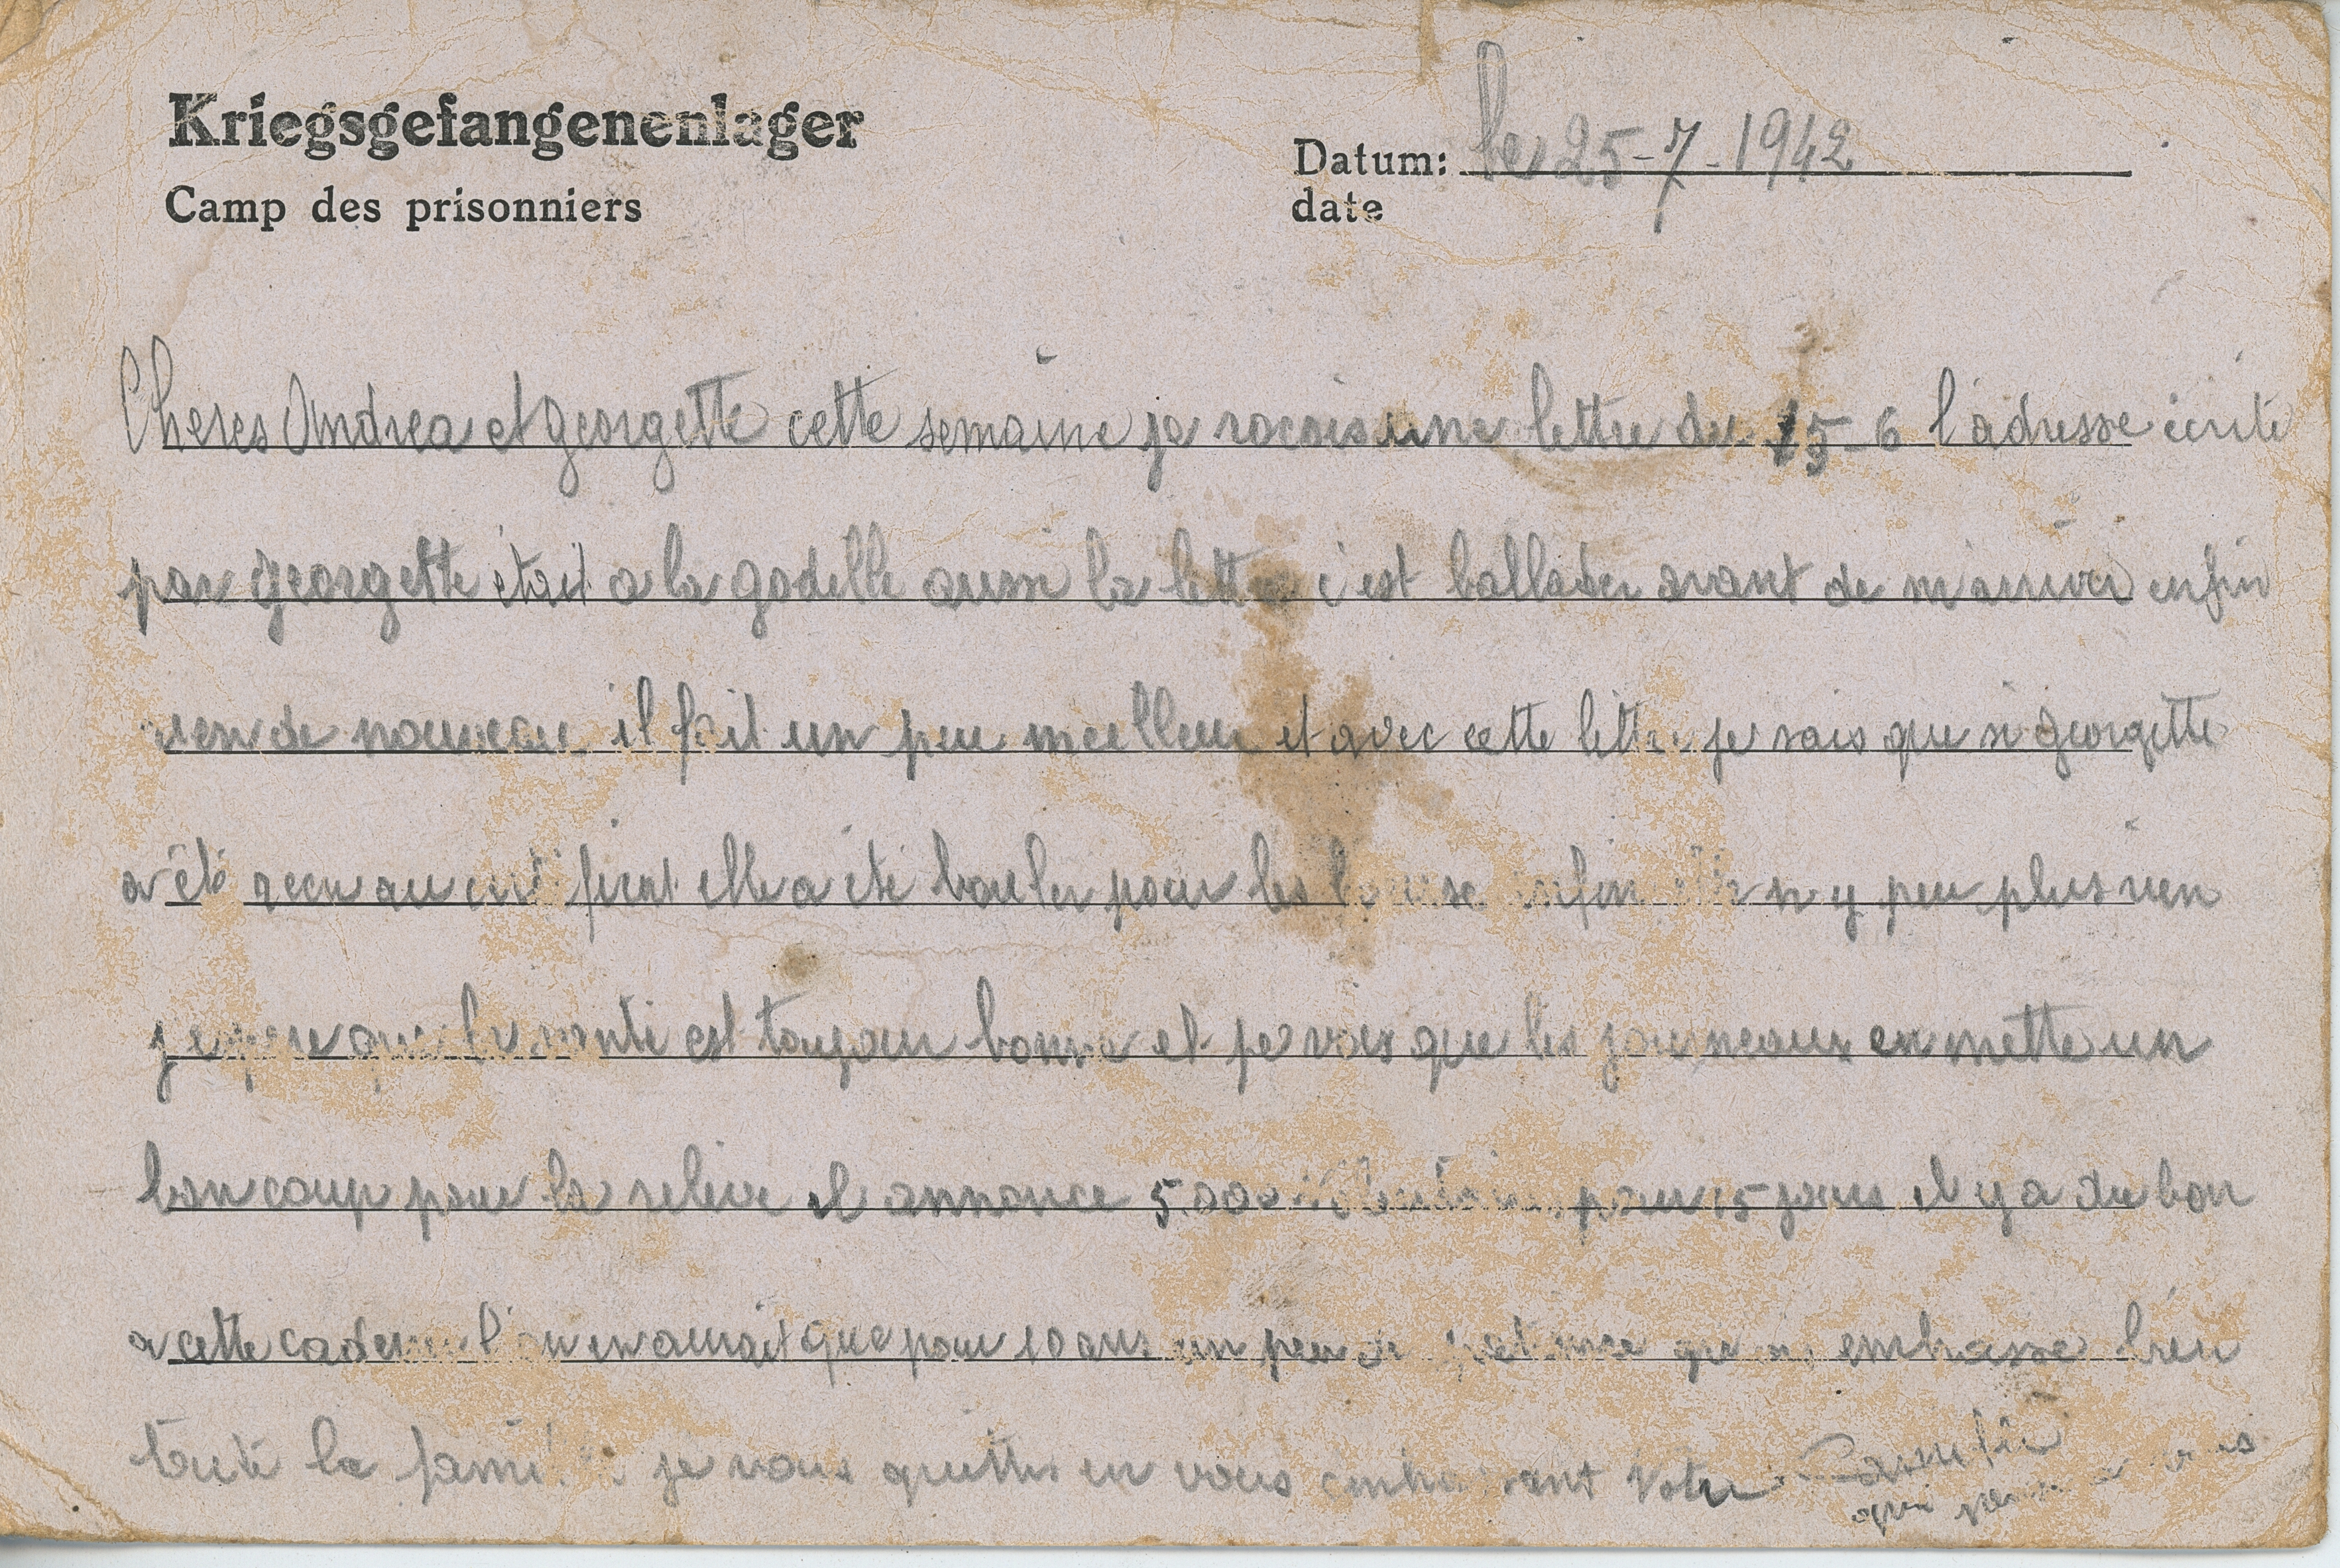 Kriegsgefangenenlager
Camp des prisonniers
Datum: le 25-7-1942
date
Cheres Andrea et georgette cette semaine je racois une lettre du 15-6 l'adresse écrite
par georgette était a la godille aussi la lettre c'est ballader avant de m'arriver enfin
rien de nouveau il fait un peu meilleur et avec cette lettre je sais que si georgette
a été recu au certificat elle a été bouler pour les bourse enfin n y peu plus rien
j espere que la santé est toujour bonne et je vois que les journeaux en mette un
bon coup pour la releve il annonce 5.000 pour 15 jours il y a du bon
a cette cadence l'on en aurait que pour 10 ans un peu de patience embrasse bien
toute la famille je vous quittes en vous embrassant votre Camille
qui pense a vous